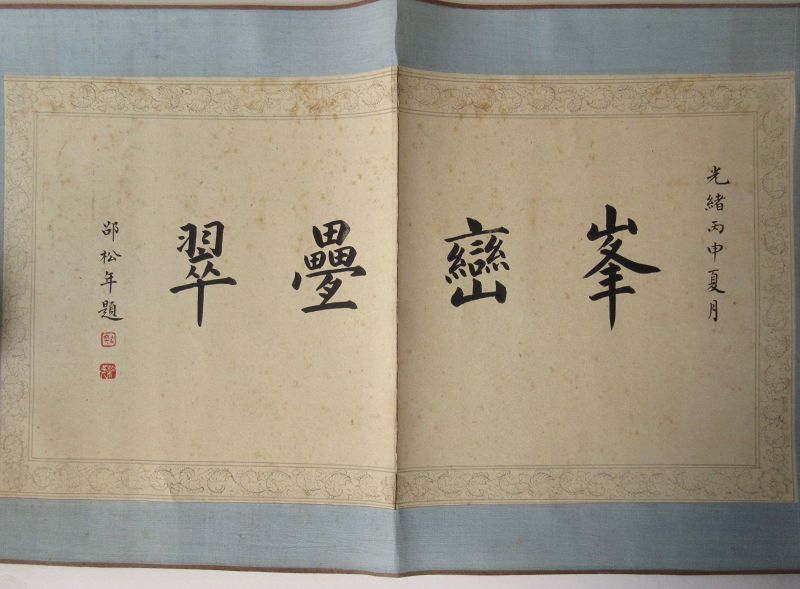 光緒丙申夏月
峯巒疊翠
邵松年題